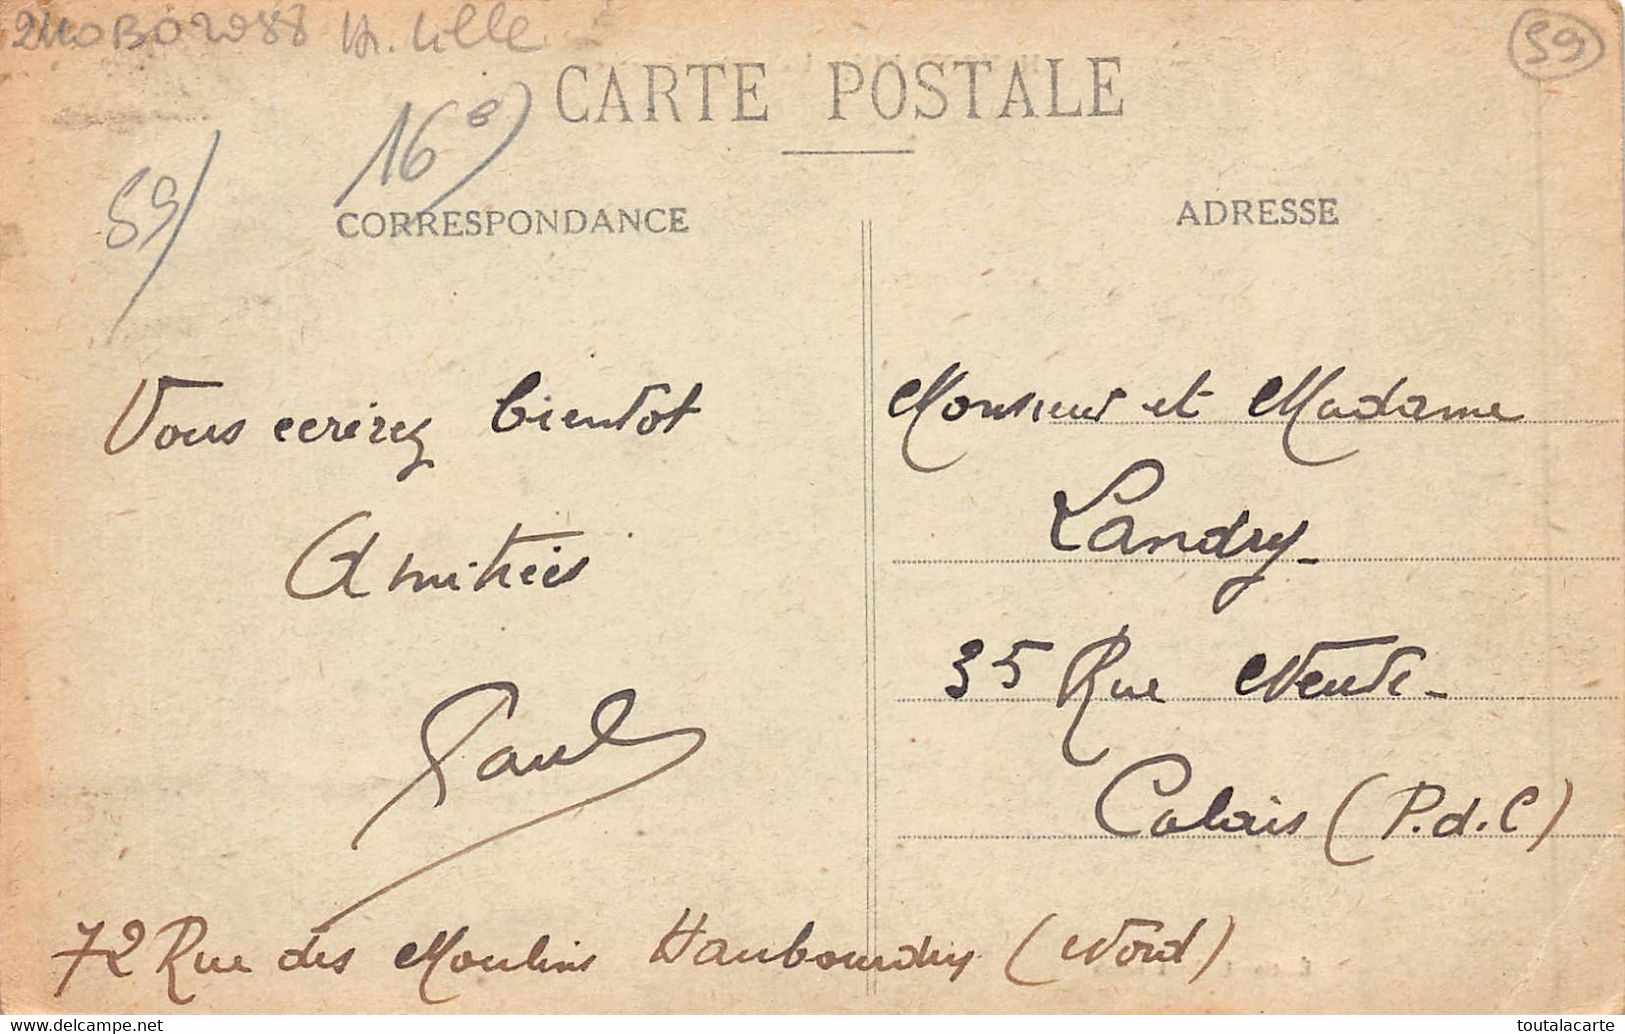 CARTE POSTALE
59
59/
16
CORRESPONDANCE
ADRESSE
Vous ecrirez bientot
Amitiés
Paul
Monsieur et Madame
Landry
35 Rue Neuve
Calais (P.d.C)
72 Rue des Moulins Haubourdin (Nord)
www.delcampe.net
toutalacarte